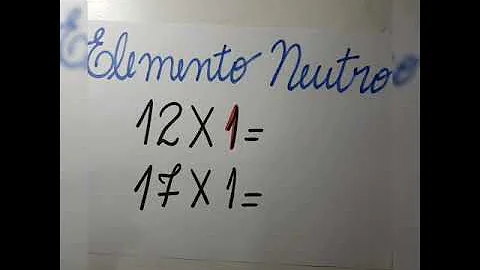 Elemento Neutro
12 X 1 =
17 X 1 =